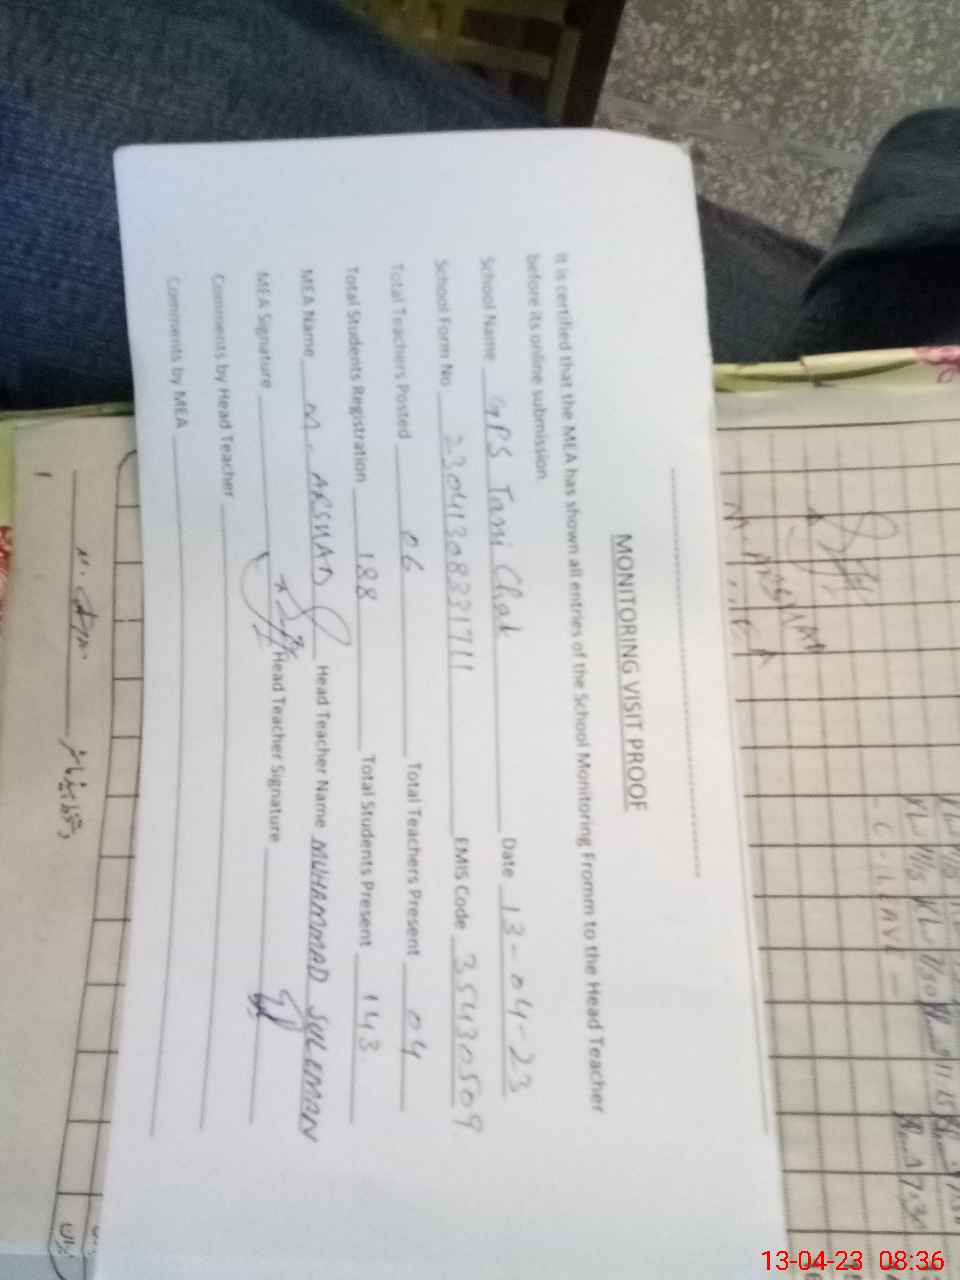 MONITORING VISIT PROOF
It is certified that the MEA has shown all entries of the School Monitoring Fromm to the Head Teacher
before its online submission.
School Name GPS Tami Chat Date 13-04-23
School Form No 23041308331711 EMIS Code 35430509
Total Teachers Posted 06 Total Teachers Present 04
Total Students Registration 188 Total Students Present 143
MEA Name M. ARSHAD Head Teacher Name MUHAMMAD SULEMAN
MEA Signature Head Teacher Signature
Comments by Head Teacher
Comments by MEA
M. ARSHAD
MEA
C. LEAVE
13-04-23 08:36